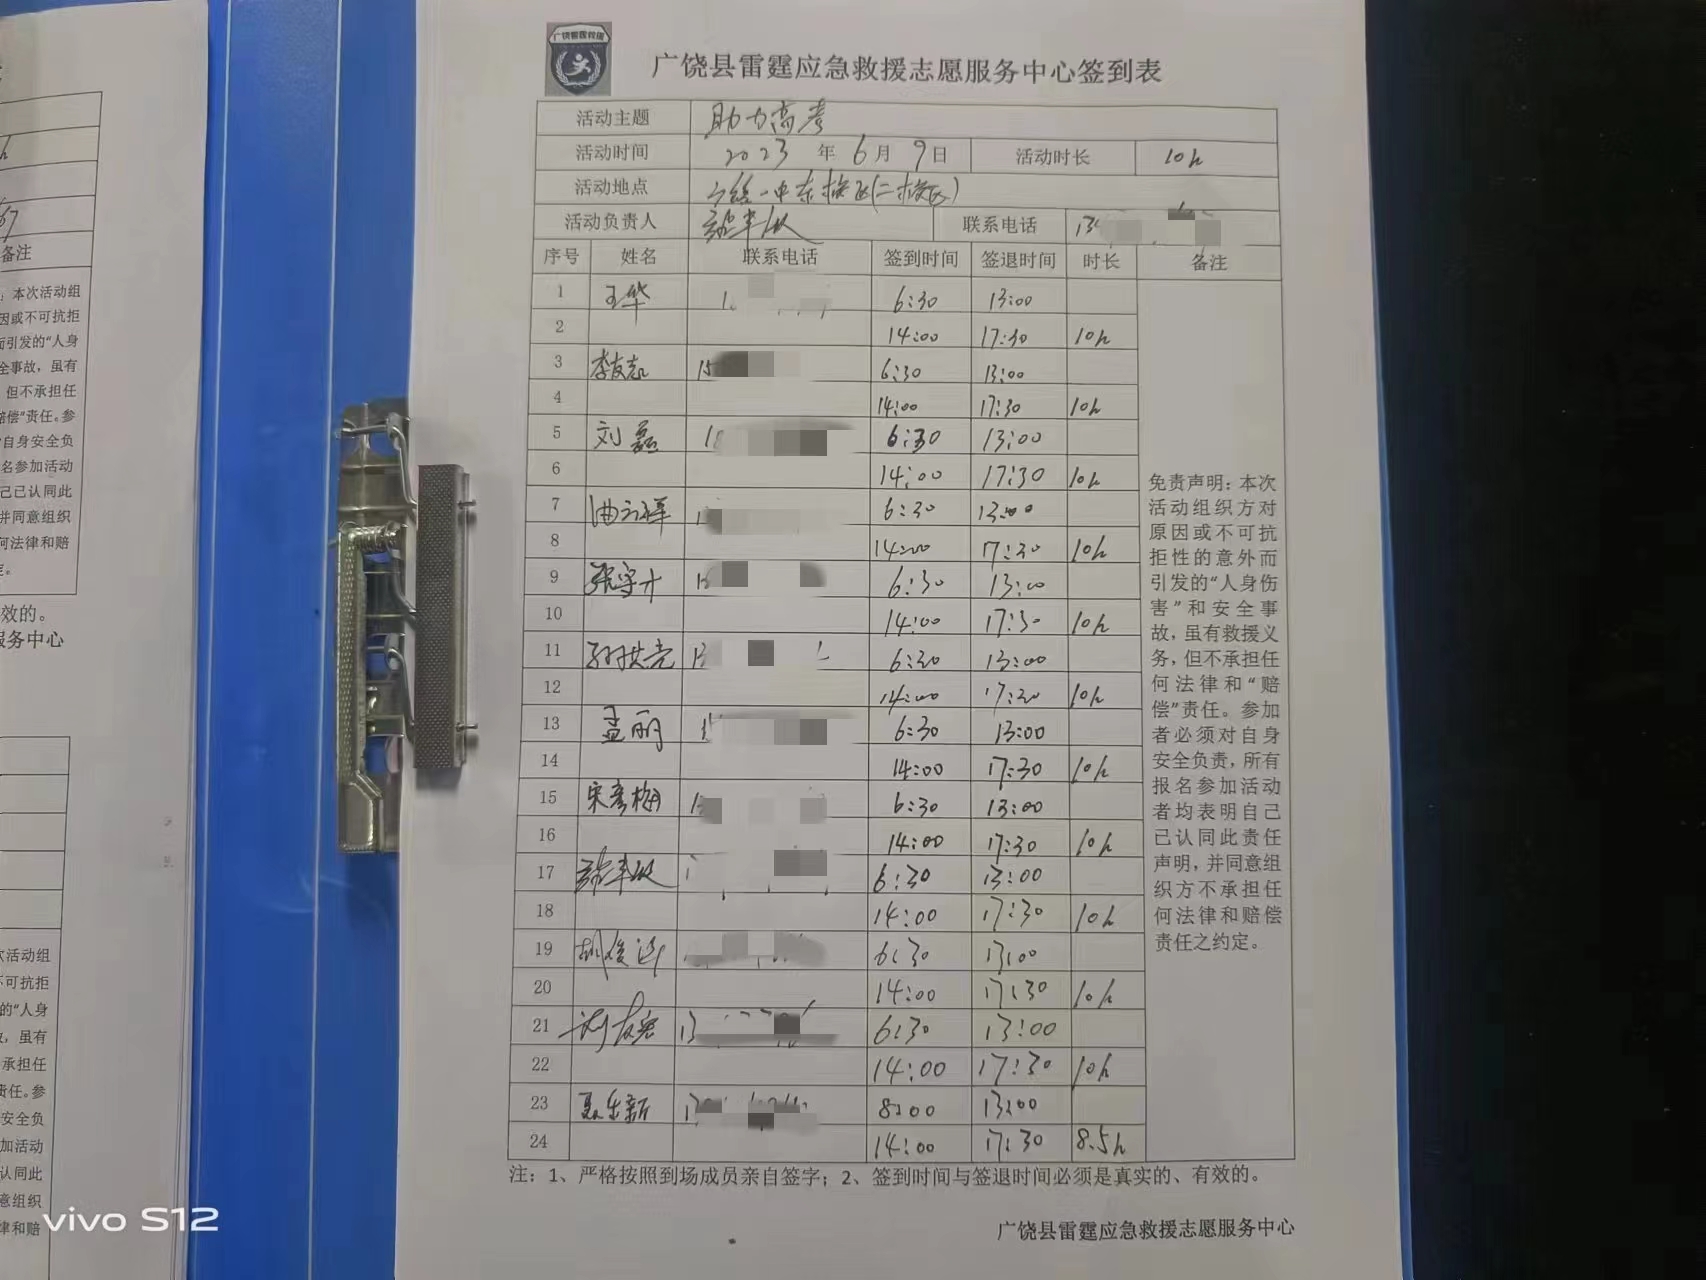 广饶县雷霆应急救援志愿服务中心签到表
活动主题 助力高考
活动时间 2023 年 6 月 9 日 活动时长 10h
活动地点 一中东校区(二校区)
活动负责人 联系电话
序号 姓名 联系电话 签到时间 签退时间 时长 备注
1 王华 6:30 13:00
2 14:00 17:30 10h
3 李友志 6:30 13:00
4 14:00 17:30 10h
5 刘磊 6:30 13:00
6 14:00 17:30 10h
7 6:30 13:00
8 14:00 17:30 10h
9 张守才 6:30 13:00
10 14:00 17:30 10h
11 孙洪亮 6:30 13:00
12 14:00 17:30 10h
13 孟丽 6:30 13:00
14 14:00 17:30 10h
15 宋彦梅 6:30 13:00
16 14:00 17:30 10h
17 6:30 13:00
18 14:00 17:30 10h
19 6:30 13:00
20 14:00 17:30 10h
21 6:30 13:00
22 14:00 17:30 10h
23 聂乐新 8:00 13:00
24 14:00 17:30 8.5h
免责声明：本次
活动组织方对
原因或不可抗
拒性的意外而
引发的“人身伤
害”和安全事
故，虽有救援义
务，但不承担任
何法律和“赔
偿”责任。参加
者必须对自身
安全负责，所有
报名参加活动
者均表明自己
已认同此责任
声明，并同意组
织方不承担任
何法律和赔偿
责任之约定。
注：1、严格按照到场成员亲自签字；2、签到时间与签退时间必须是真实的、有效的。
广饶县雷霆应急救援志愿服务中心
备注
本次活动组
因或不可抗拒
而引发的“人身
全事故，虽有
但不承担任
赔偿”责任。参
自身安全负
名参加活动
己已认同此
并同意组织
何法律和赔
效的。
服务中心
次活动组
不可抗拒
的“人身
故，虽有
承担任
责任。参
安全负
加活动
认同此
意组织
律和赔
vivo S12